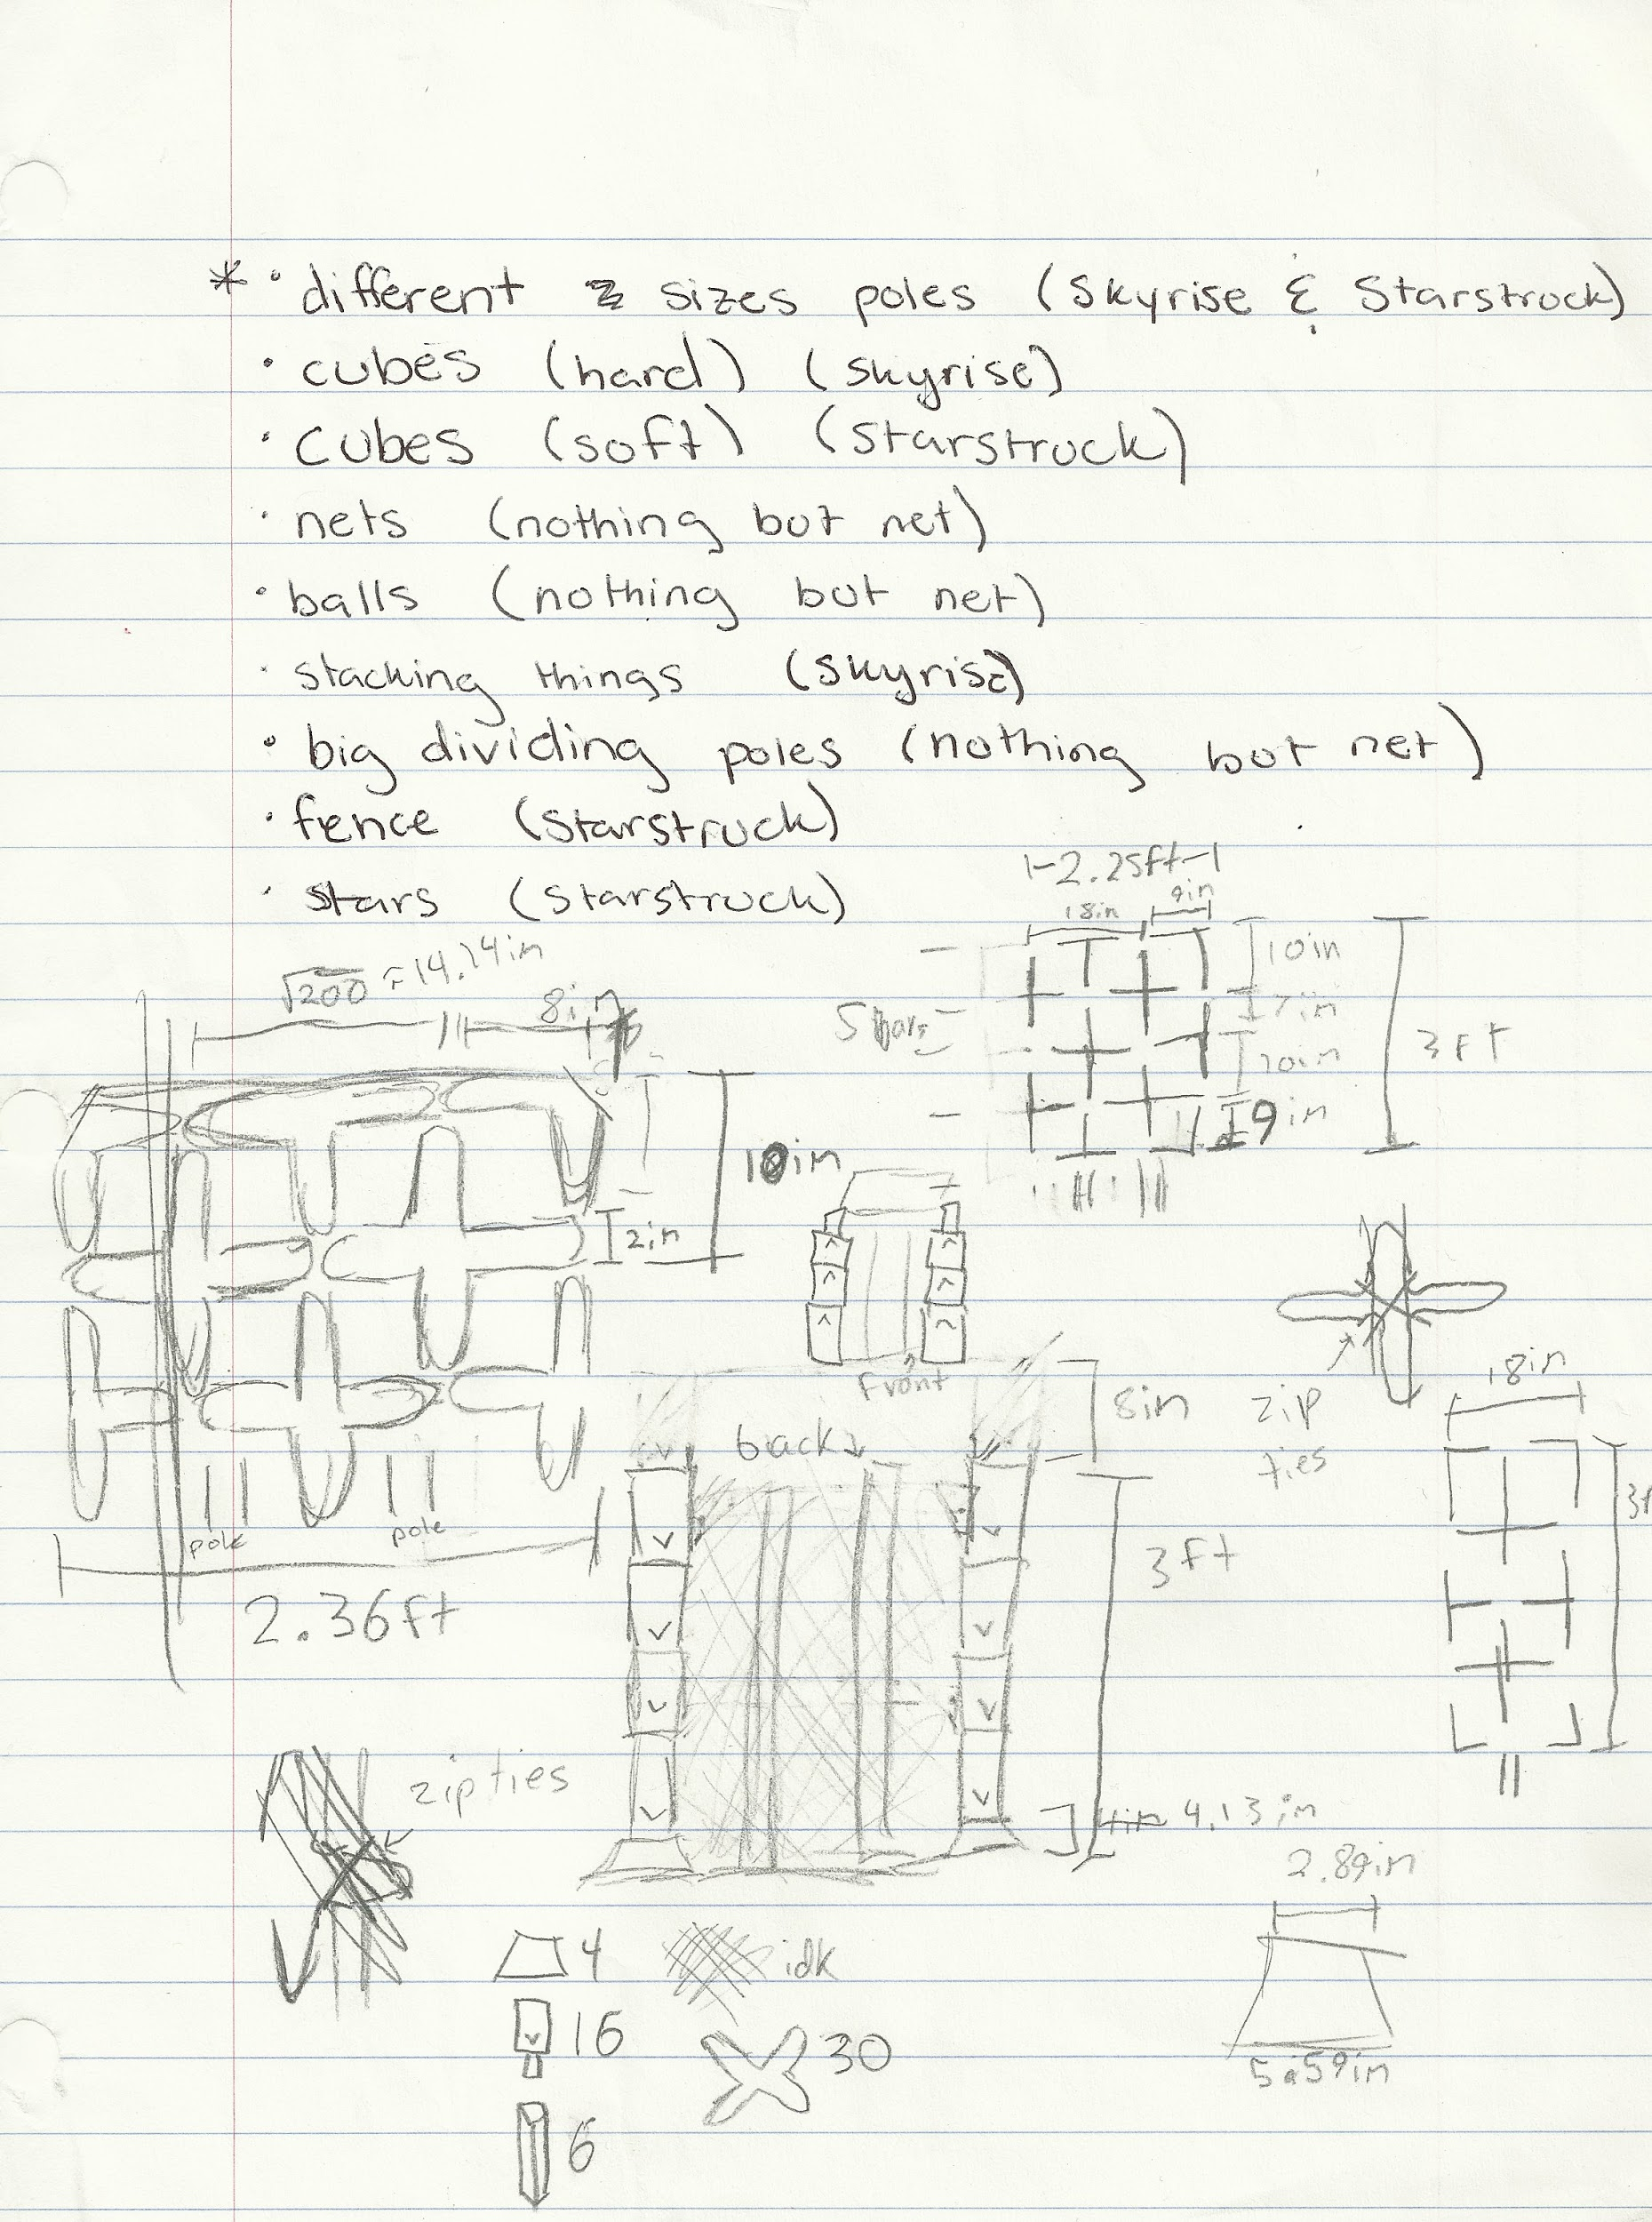 * • different sizes poles (Skyrise & Starstruck)
• cubes (hard) (skyrise)
• cubes (soft) (starstruck)
• nets (nothing but net)
• balls (nothing but net)
• stacking things (skyrise)
• big dividing poles (nothing but net)
• fence (starstruck)
• stars (starstruck)
2.25ft
18in 9in
10in
7in
10in
9in
3ft
√200 ≈ 14.14in
8in
10in
2in
pole pole
2.36ft
front
back
8in
3ft
4in 4.13in
zip ties
18in
zip ties
2.89in
5.59in
4
idk
16
30
6